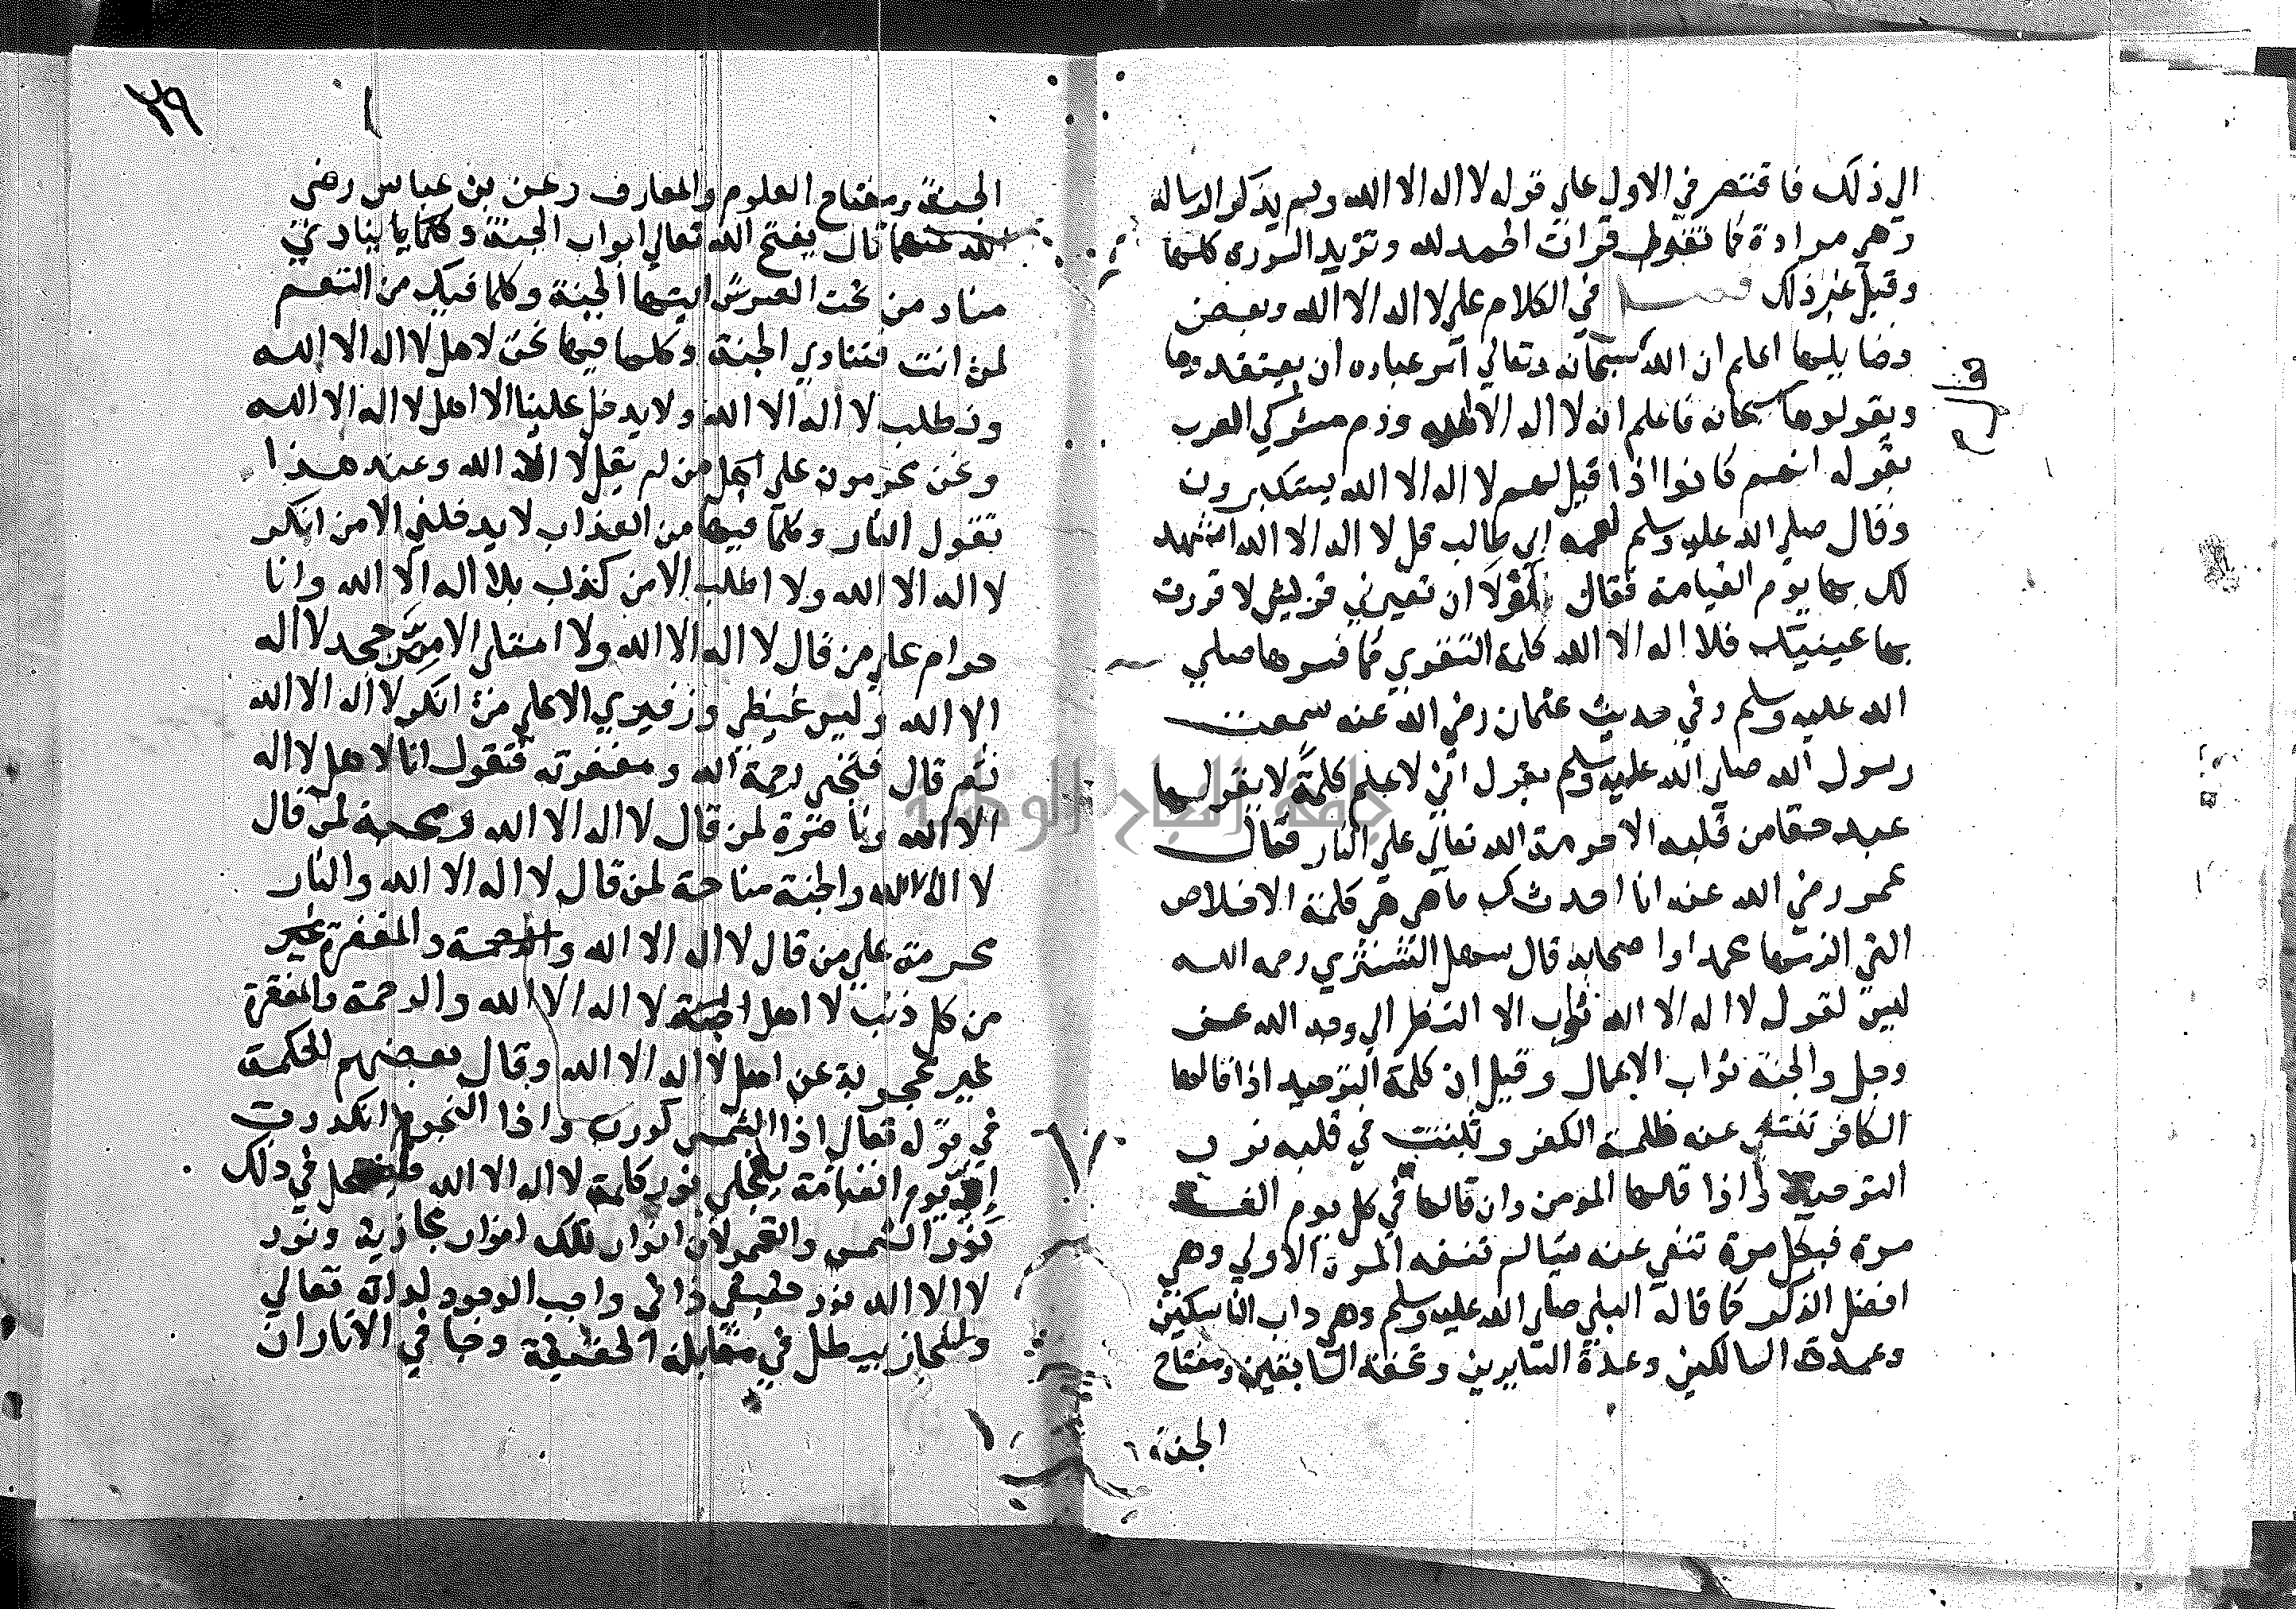 الي ذلك فاقتصر في الاول علي قوله لا اله الا الله ولم يذكر الرسالة
وهي مرادة كما تقول قرات الحمد لله وتريد السورة كلها
وقيل غير ذلك فصل في الكلام علي لا اله الا الله وبعض
فضايلها اعلم ان الله سبحانه وتعالي امر عباده ان يعتقدوها
ويقولوها سبحانه فاعلم انه لا اله الا الله وذم مشركي العرب
بقوله انهم كانوا اذا قيل لهم لا اله الا الله يستكبرون
وقال صلي الله عليه وسلم لعمه ابي طالب قل لا اله الا الله اشهد
لك بها يوم القيامة فقال لولا ان تعيرني قريش لاقررت
بها عينيك فلا اله الا الله كلمة التقوي كما فسرها صلي
الله عليه وسلم وفي حديث عثمان رضي الله عنه سمعت
رسول الله صلي الله عليه وسلم يقول اني لاعلم كلمة لا يقولها
عبد حقا من قلبه الا حرمه الله تعالي علي النار فقال
عمر رضي الله عنه انا احدثك ما هي هي كلمة الاخلاص
التي الزمها محمدا واصحابه قال سهل التستري رحمه الله
ليس لقول لا اله الا الله ثواب الا النظر الي وجه الله عز
وجل والجنة ثواب الاعمال وقيل ان كلمة التوحيد اذا قالها
الكافر تنتفي عنه ظلمة الكفر وتثبت في قلبه نور
التوحيد واذا قالها المومن وان قالها في كل يوم الف
مرة فبكل مرة تنفي عنه شيا لم تنفه المرة الاولي وهي
افضل الذكر كما قاله النبي صلي الله عليه وسلم وهي داب الناسكين
وعمدة السالكين وعدة السايرين وتحفة السابقين ومفتاح
الجنة
٢٩
الجنة ومفتاح العلوم والمعارف وعن بن عباس رضي
الله عنهما قال يفتح الله تعالي ابواب الجنة وينادي
مناد من تحت العرش ايتها الجنة وكلما فيك من النعيم
لمن انت فتنادي الجنة وكلما فيها نحن لاهل لا اله الا الله
ونطلب لا اله الا الله ولا يدخل علينا الا اهل لا اله الا الله
ونحن محرمون علي من لم يقل لا اله الا الله وعند هذا
تقول النار وكلما فيها من العذاب لا يدخلني الا من انكر
لا اله الا الله ولا اطلب الا من كذب بلا اله الا الله وانا
حرام علي من قال لا اله الا الله ولا امتلي الا ممن جحد لا اله
الا الله وليس غيظي وزفيري الا علي من انكر لا اله الا الله
ثم قال فتجي رحمة الله ومغفرته فتقول انا لاهل لا اله
الا الله وناصرة لمن قال لا اله الا الله ومحبة لمن قال
لا اله الا الله والجنة مباحة لمن قال لا اله الا الله والنار
محرمة علي من قال لا اله الا الله والمغفرة
من كل ذنب لا اهل لا اله الا الله والرحمة والمغفرة
غير محجوبة عن اهل لا اله الا الله وقال بعضهم الحكمة
في قوله تعالي اذا الشمس كورت واذا النجوم انكدرت
يوم القيامة يتجلي نور كلمة لا اله الا الله في ذلك
نور الشمس والقمر لان انوار تلك انوار مجازية ونور
لا الا الله نور حقيقي ذاتي واجب الوجود لذاته تعالي
والمجاز يبطل في مقابلة الحقيقة وجا في الاثار ان